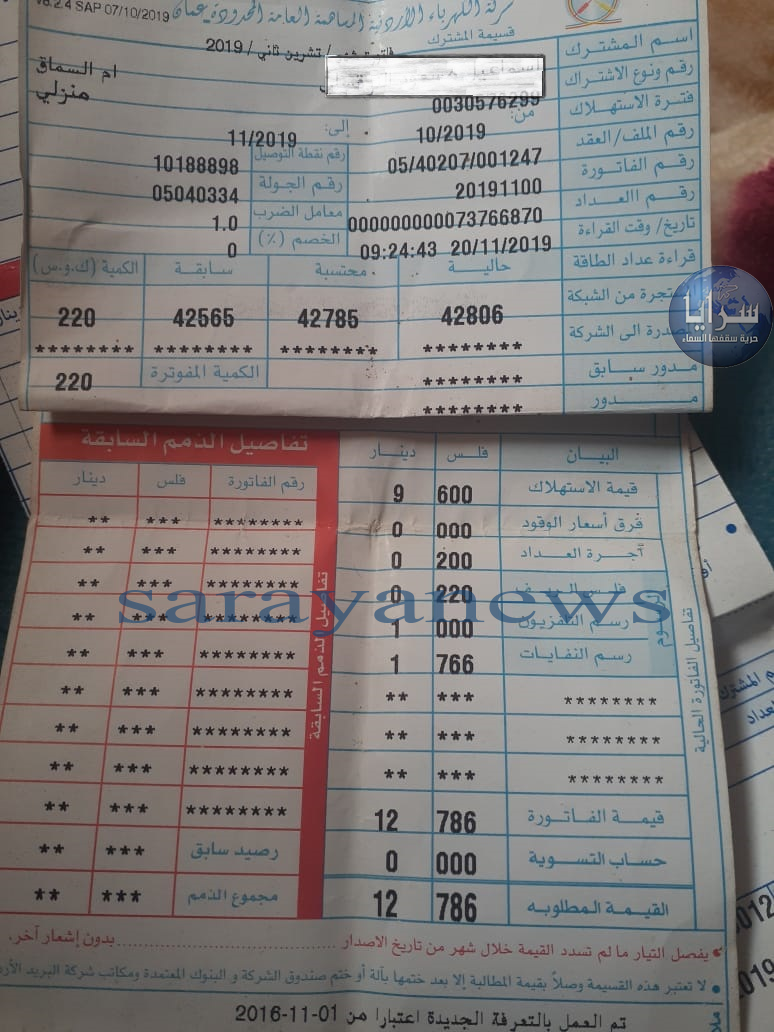 v6.2.4 SAP 07/10/2019
شركة الكهرباء الأردنية المساهمة العامة المحدودة - عمان
قسيمة المشترك
تشرين ثاني / 2019
اسم المشترك
رقم ونوع الاشتراك 0030576299 ام السماق
منزلي
فترة الاستهلاك من: 10/2019 إلى: 11/2019
رقم الملف/العقد 05/40207/001247 رقم نقطة التوصيل 10188898
رقم الفاتورة 20191100 رقم الجولة 05040334
رقم العداد 000000000073766870 معامل الضرب 1.0
تاريخ/ وقت القراءة 20/11/2019 09:24:43 الخصم (%) 0
قراءة عداد الطاقة حالية محتسبة سابقة الكمية (ك.و.س)
المستجرة من الشبكة 42806 42785 42565 220
المصدرة الى الشركة ******** ******** ******** ********
مدور سابق ******** الكمية المفوترة 220
مدور ********
سرايا
حرية سقفها السماء
البيان فلس دينار
قيمة الاستهلاك 600 9
فرق أسعار الوقود 000 0
أجرة العداد 200 0
220 0
رسم التلفزيون 000 1
رسم النفايات 766 1
******** *** **
******** *** **
******** *** **
قيمة الفاتورة 786 12
حساب التسوية 000 0
القيمة المطلوبه 786 12
تفاصيل الفاتورة الحالية
تفاصيل الذمم السابقة
رقم الفاتورة فلس دينار
******** *** **
******** *** **
******** *** **
******** *** **
******** *** **
******** *** **
******** *** **
******** *** **
******** *** **
رصيد سابق *** **
مجموع الذمم *** **
تفاصيل الذمم السابقة
sarayanews
يفصل التيار ما لم تسدد القيمة خلال شهر من تاريخ الاصدار ........................ بدون إشعار آخر.
• لا تعتبر هذه القسيمة وصلاً بقيمة المطالبة إلا بعد ختمها بآلة أو ختم صندوق الشركة و البنوك المعتمدة ومكاتب شركة البريد
تم العمل بالتعرفة الجديدة اعتبارا من 01-11-2016